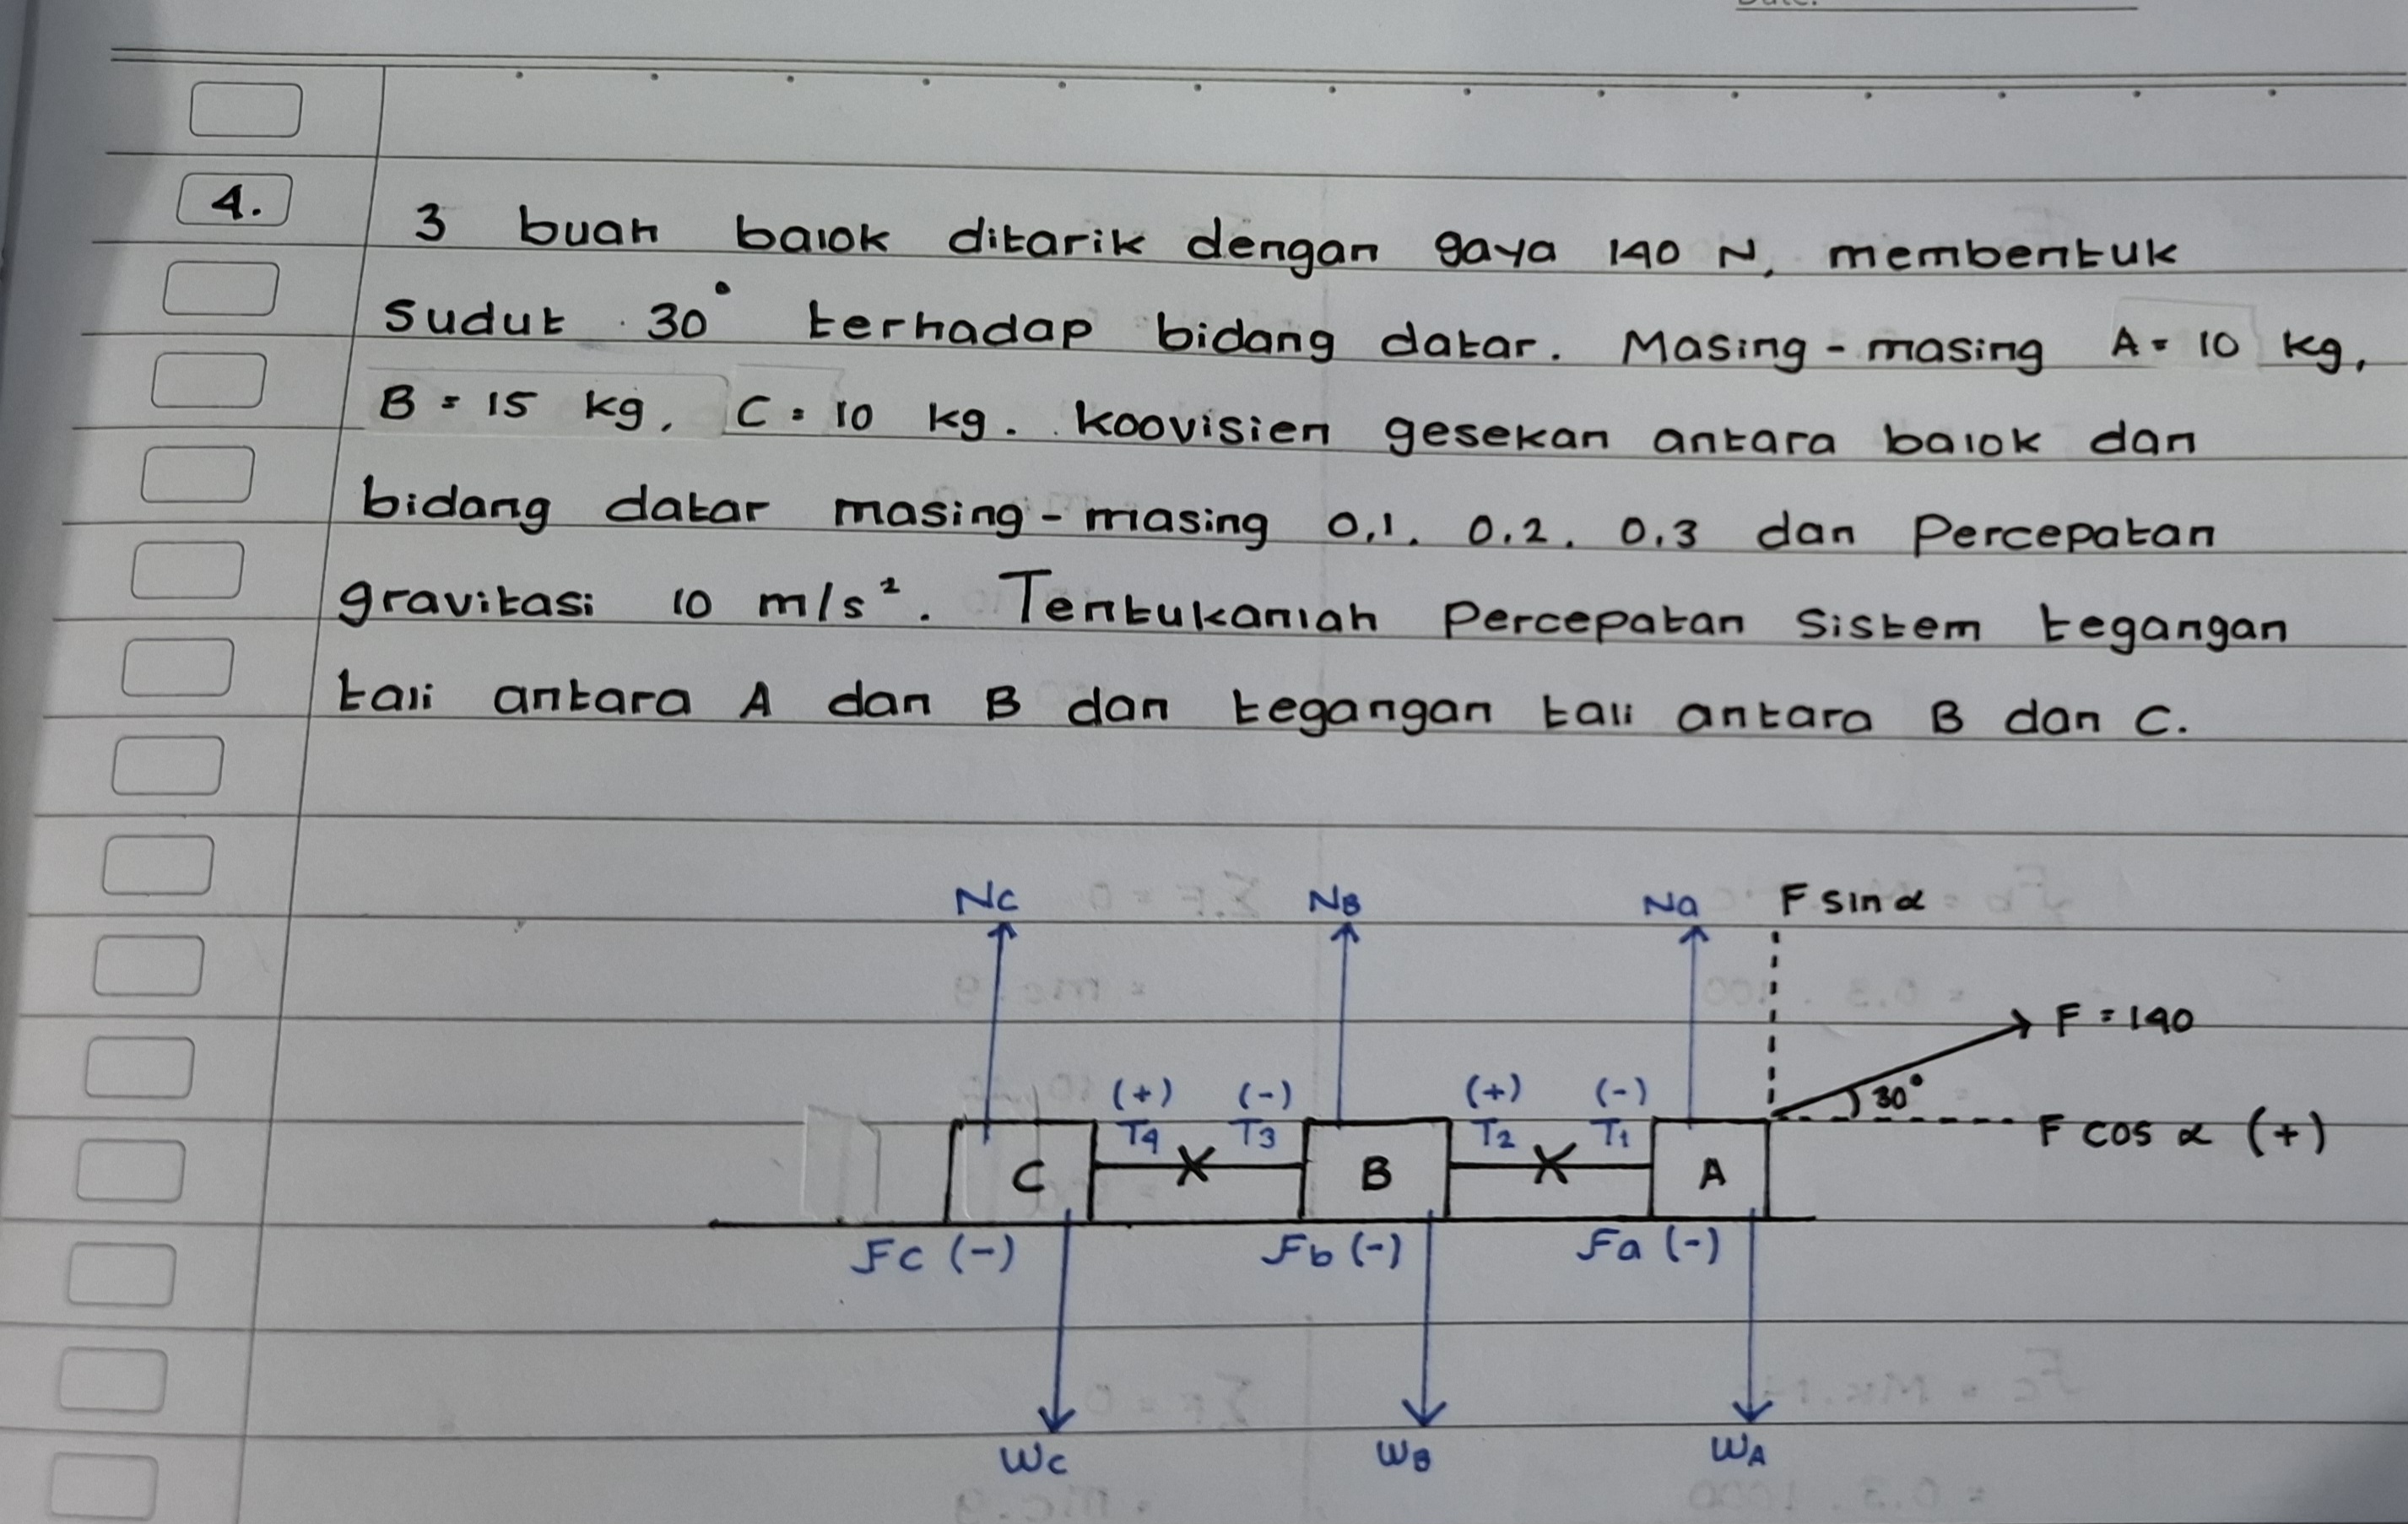 4. 3 buah balok ditarik dengan gaya 140 N, membentuk
sudut 30° terhadap bidang datar. Masing-masing A = 10 kg,
B = 15 kg, C = 10 kg. koovisien gesekan antara balok dan
bidang datar masing-masing 0,1. 0,2. 0,3 dan Percepatan
gravitasi 10 m/s². Tentukanlah Percepatan Sistem tegangan
tali antara A dan B dan tegangan tali antara B dan C.
Nc NB Na F sin α
F = 140
(+) (-) (+) (-) 30°
T4 T3 T2 T1 F cos α (+)
C B A
Fc (-) Fb (-) Fa (-)
Wc WB WA